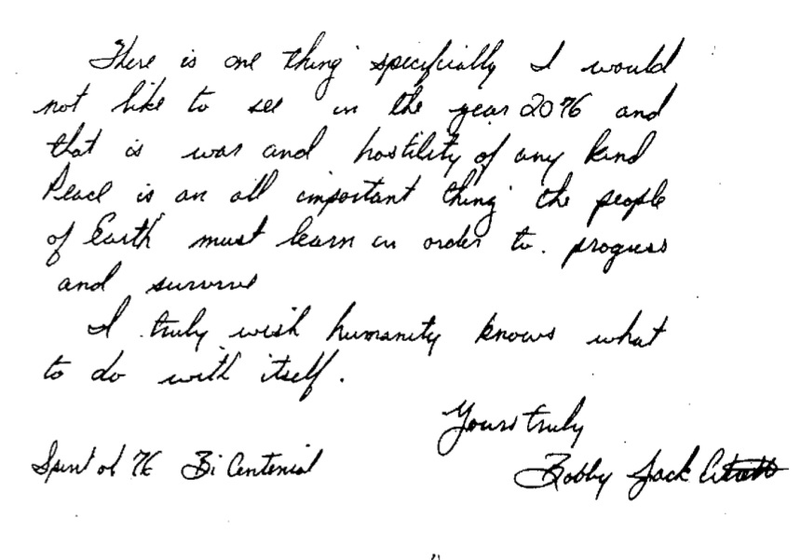 There is one thing specificially I would
not like to see in the year 2076 and
that is war and hostility of any kind
Peace is an all important thing the people
of Earth must learn in order to. progress
and survive
I truly wish humanity knows what
to do with itself.
Yours truly
Spirit of 76 Bi Centenial
Bobby Jack